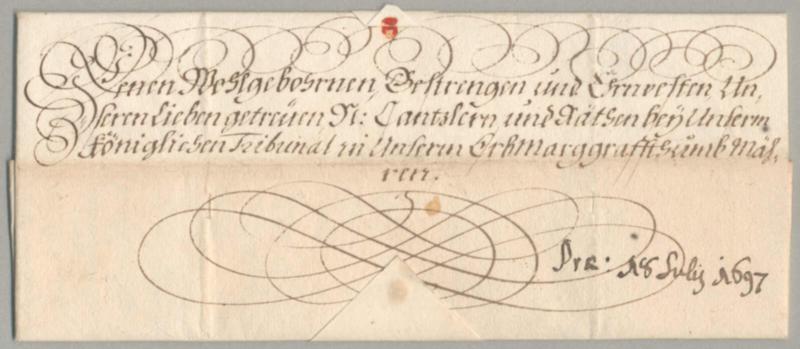 Denen Wohlgebohrnen, Gestrengen und Ehrnvesten, Un,
seren lieben getreüen N: Cantzlern, und Räthen beÿ Unserm
Königlichen Tribunal in Unserm ErbMarggraffthumb Mäh,
ren.
Præ: 18 Julij 1697